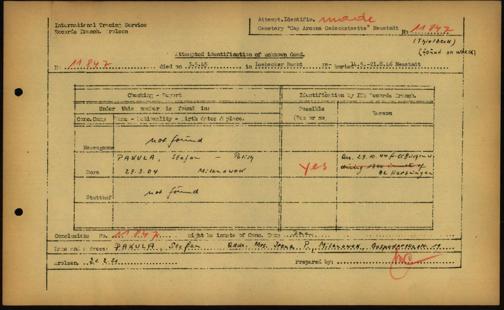 International Tracing Service
Records Branch, Arolsen
Attempt.Identific. made
Cemetery "Cap Arcona Gedenkstaette" Neustadt
No 11 847
(found on wreck)
Attempted identification of unknown dead.
No. 11 847 died on 3.5.45 in Luebecker Bucht re- buried 14.5.-21.8.46 Neustadt
Checking - Report
Identification by ITS Records Branch.
Under this number is found in:
Possible
Reason
Conc.Camp
Name - Nationality - Birth dates & place.
(Yes or no)
Neuengamme
not found
PAKULA, Stefan - Polish
yes
Dora
29.3.04 Milanowek
Stutthof
not found
Conclusion: No. 11 847 might be inmate of Conc. Camp Dora
Name and Address: PAKULA, Stefan Mrs. Irena P., Milanowek,
Arolsen,
Prepared by: